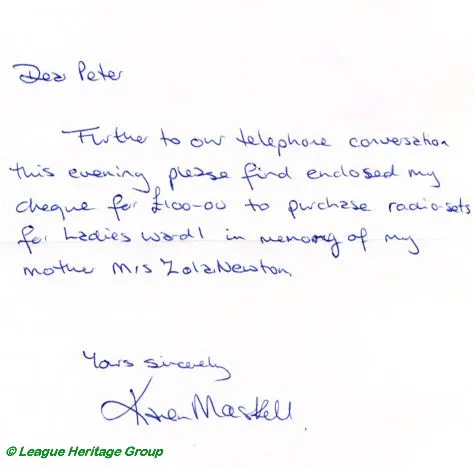 Dear Peter
Further to our telephone conversation
this evening please find enclosed my
cheque for £100-00 to purchase radio-sets
for Ladies Ward 1 in memory of my
mother Mrs Zola Newton.
Yours sincerely
Karen Maskell
© League Heritage Group